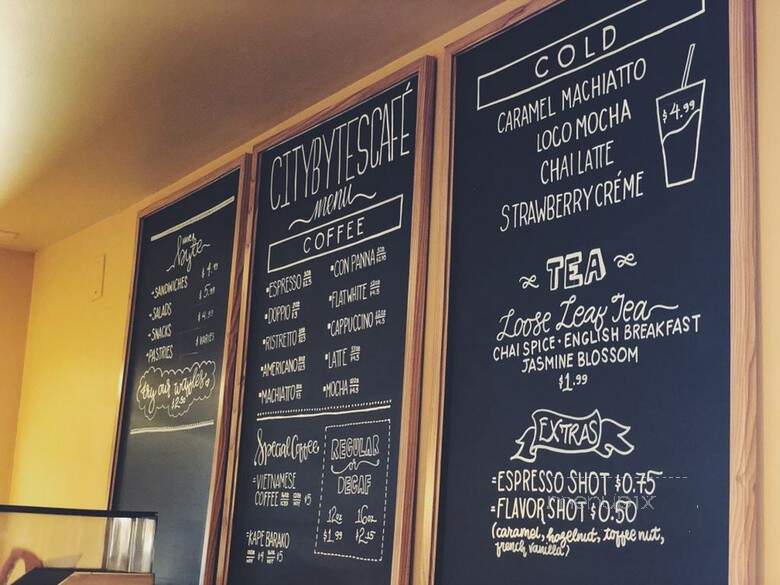 byte
SANDWICHES $4.99
SALADS $5.99
SNACKS $4.99
PASTRIES $VARIES
try our waffles
$2.50
CITYBYTESCAFÉ
menu
COFFEE
ESPRESSO
DOPPIO
RISTRETTO
AMERICANO
MACHIATTO
CON PANNA
FLATWHITE
CAPPUCCINO
LATTE
MOCHA
Special Coffee
VIETNAMESE
COFFEE $5
KAPE BARAKO
$4 $5
REGULAR
or
DECAF
12oz 16oz
$1.99 $2.25
COLD
CARAMEL MACHIATTO
LOCO MOCHA
CHAI LATTE
STRAWBERRY CRÉME
$4.99
TEA
Loose Leaf Tea
CHAI SPICE · ENGLISH BREAKFAST
JASMINE BLOSSOM
$1.99
EXTRAS
ESPRESSO SHOT $0.75
FLAVOR SHOT $0.50
(caramel, hazelnut, toffee nut,
french vanilla)
menupix